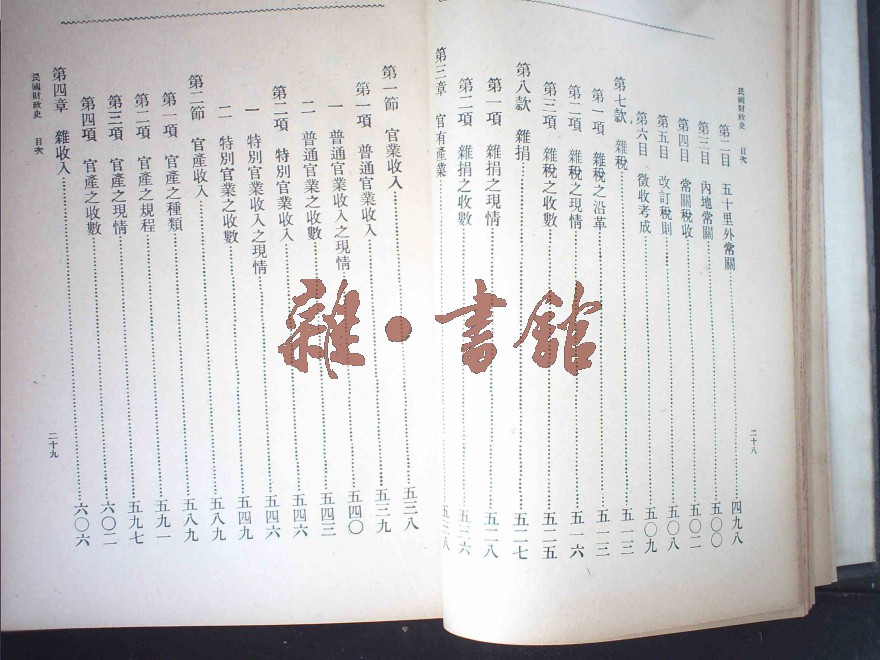 民國財政史 目次
第二目 五十里外常關 四九八
第三目 內地常關 五〇〇
第四目 常關稅收 五〇二
第五目 改訂稅則 五〇八
第六目 徵收考成 五〇九
第七款 雜稅 五一三
第一項 雜稅之沿革 五一三
第二項 雜稅之現情 五一六
第三項 雜稅之收數 五二五
第八款 雜捐 五二七
第一項 雜捐之現情 五二八
第二項 雜捐之收數 五三六
第三章 官有產業 五三八
二十八
第一節 官業收入 五三八
第一項 普通官業收入 五三九
一 普通官業收入之現情 五四〇
二 普通官業之收數 五四三
第二項 特別官業收入 五四六
一 特別官業收入之現情 五四六
二 特別官業之收數 五四九
第二節 官產收入 五八九
第一項 官產之種類 五八九
第二項 官產之規程 五九一
第三項 官產之現情 五九七
第四項 官產之收數 六〇二
第四章 雜收入 六〇六
民國財政史 目次
二十九
雜·書館